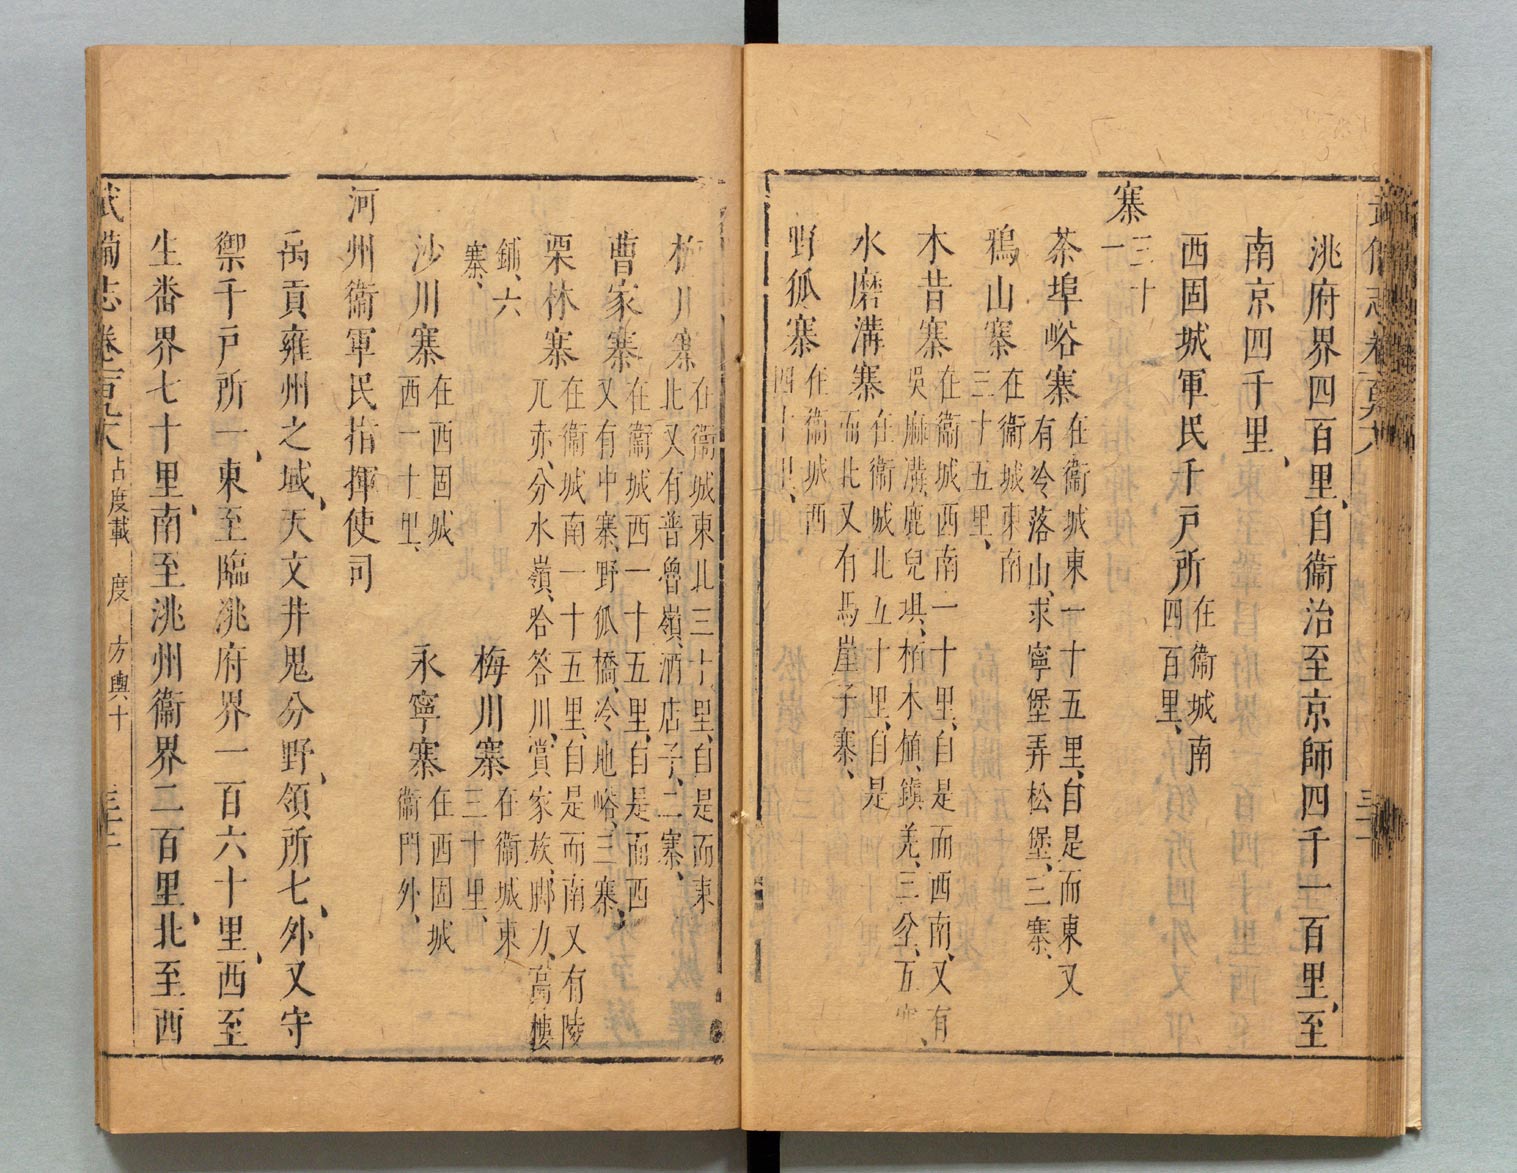 洮府界四百里、自衞治至京師四千一百里、至
南京四千里、
西固城軍民千戸所在衞城南四百里、
寨三十一
茶埠峪寨在衞城東一十五里、自是而東又有冷落山、求寧堡弄松堡、三寨、
鴉山寨在衞城東南三十五里、
木昔寨在衞城西南一十里、自是而西南、又有吳麻溝、鹿兒垻、栢木傾、鎮羌、三岔、五
水磨溝寨在衞城北五十里、自是而北又有馬崖子寨、
野狐寨在衞城西四十里、
梅川寨在衞城東北三十里、自是而東北又有普魯嶺、酒店子、二寨、
曹家寨在衞城西一十五里、自是而西又有中寨、野狐橋、冷地峪、三寨、
栗林寨在衞城南一十五里、自是而南又有陵兀赤、分水嶺、哈答川、賞家族、郷力、高樓
鋪、六寨、
梅川寨在衞城東三十里、
沙川寨在西固城西一十里、
永寧寨在西固城衞門外、
河州衞軍民指揮使司
禹貢雍州之域、天文井鬼分野、領所七、外又守
禦千戸所一、東至臨洮府界一百六十里、西至
生番界七十里、南至洮州衞界二百里、北至西
武備志卷一百九十八 占度載 度 方輿十